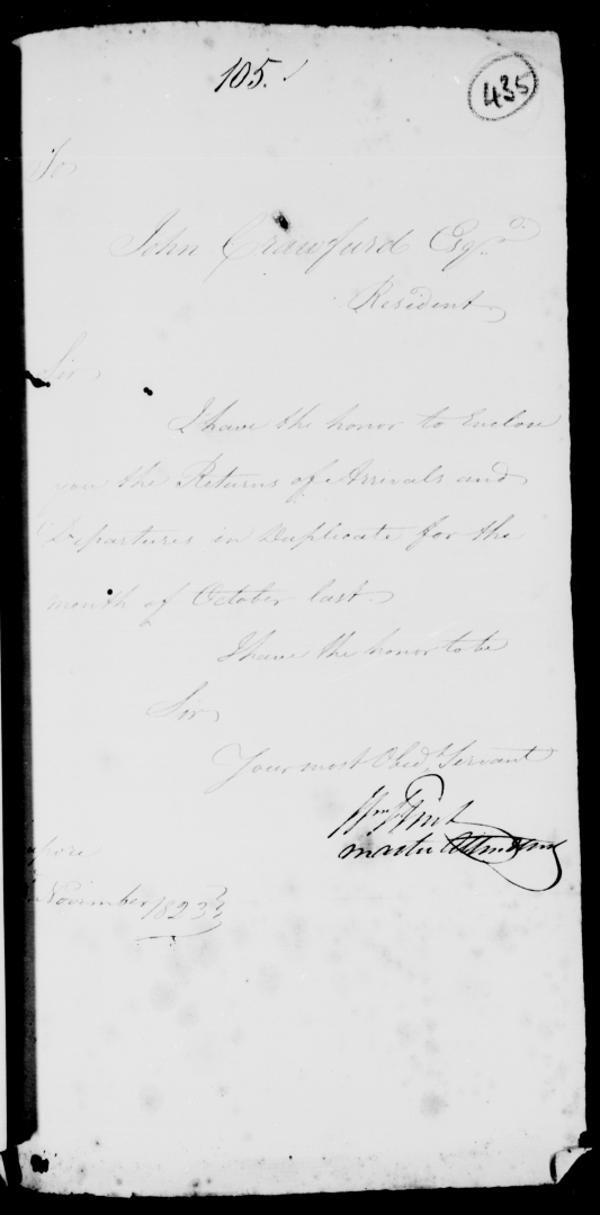 105.
435
To
John Crawfurd Esqr.
Resident
Sir
I have the honor to Enclose
you the Returns of Arrivals and
Departures in Duplicate for the
month of October last.
I have the honor to be
Sir
Your most Obedt Servant
Wm Flint
Master Attendant
pore
November 1823